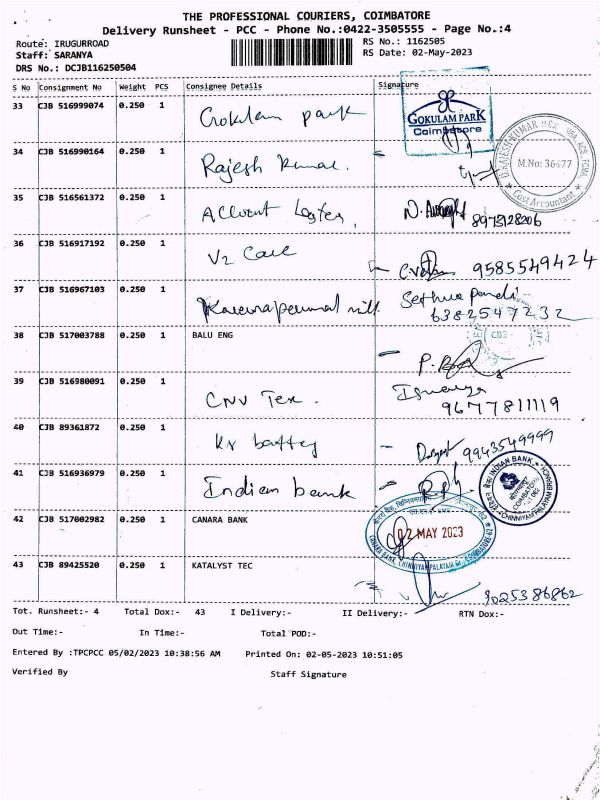 THE PROFESSIONAL COURIERS, COIMBATORE
Delivery Runsheet - PCC - Phone No.:0422-3505555 - Page No.:4
Route: IRUGURROAD
RS No.: 1162505
Staff: SARANYA
RS Date: 02-May-2023
DRS No.: DCJB116250504
S No Consignment No Weight PCS Consignee Details Signature
33 CJB 516999074 0.250 1 Gokulam park
GOKULAM PARK
Coimbatore
34 CJB 516990164 0.250 1 Rajesh Kumar.
M.No: 36477
Cost Accountant
35 CJB 516561372 0.250 1
8975128206
36 CJB 516917192 0.250 1 V2 Care
9585549424
37 CJB 516967103 0.250 1
6382547232
38 CJB 517003788 0.250 1 BALU ENG
39 CJB 516980091 0.250 1 CNV Tex.
9677811119
40 CJB 89361872 0.250 1 battery
9943549999
41 CJB 516936979 0.250 1 Indian bank
INDIAN BANK
42 CJB 517002982 0.250 1 CANARA BANK
02 MAY 2023
CANARA BANK, CHINNIYAMPALAYAM
43 CJB 89425520 0.250 1 KATALYST TEC
9025386862
Tot. Runsheet:- 4 Total Dox:- 43 I Delivery:- II Delivery:- RTN Dox:-
Out Time:- In Time:- Total POD:-
Entered By :TPCPCC 05/02/2023 10:38:56 AM Printed On: 02-05-2023 10:51:05
Verified By Staff Signature